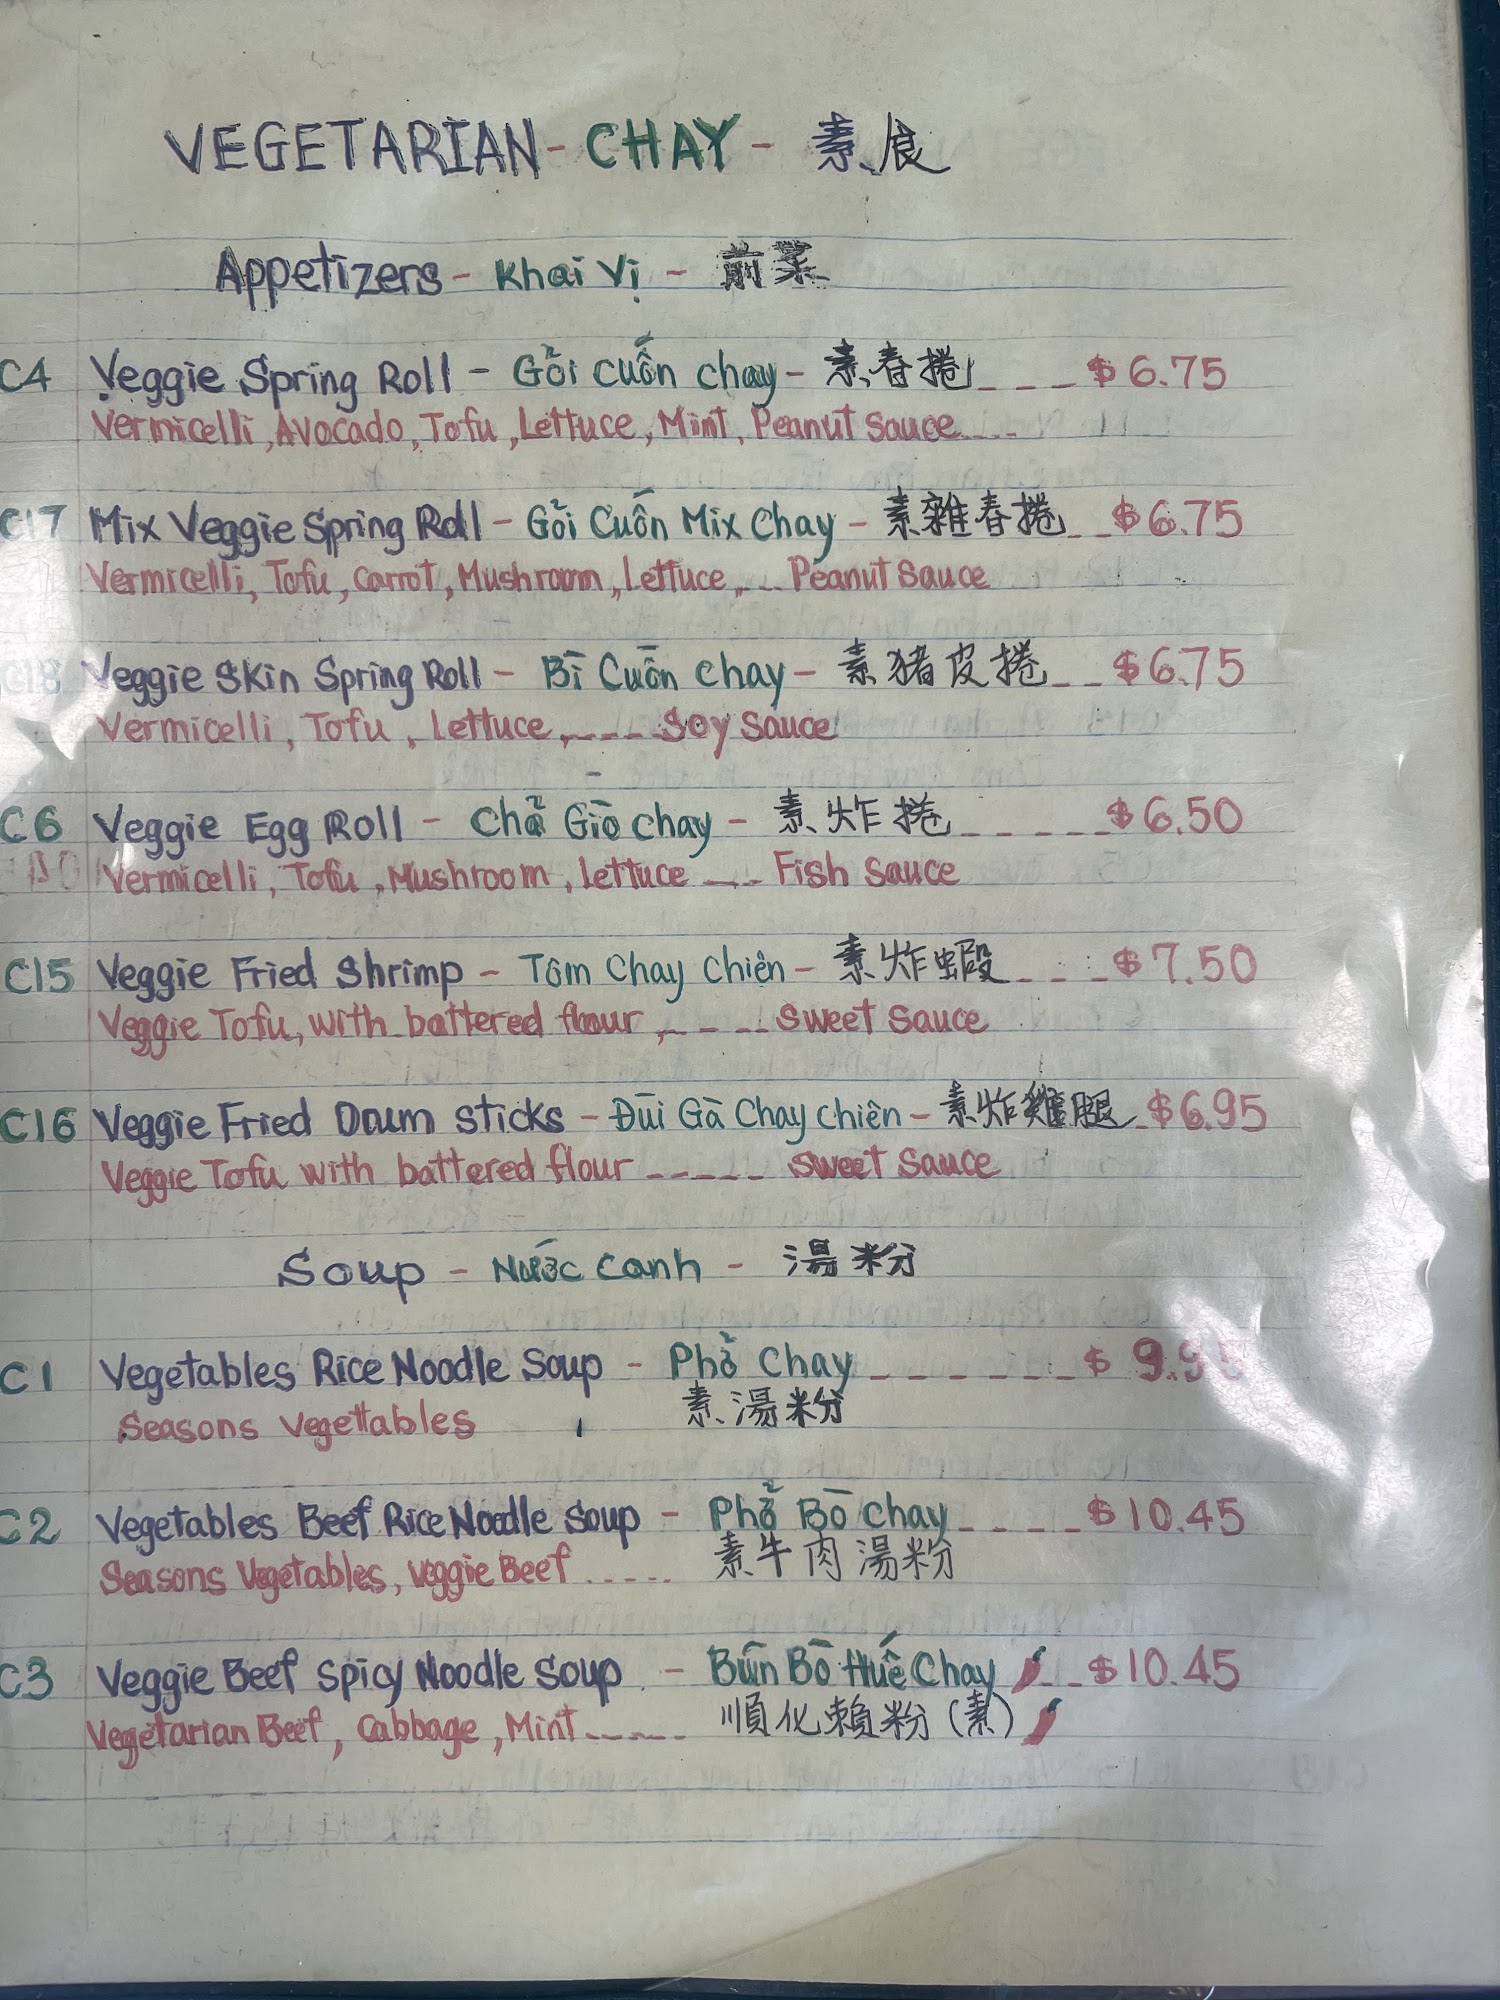 VEGETARIAN - CHAY - 素食
Appetizers - Khai Vị - 前菜
C4 Veggie Spring Roll - Gỏi Cuốn chay - 素春捲 _ _ _ $6.75
Vermicelli, Avocado, Tofu, Lettuce, Mint, Peanut Sauce....
C17 Mix Veggie Spring Roll - Gỏi Cuốn Mix Chay - 素雜春捲 _ _ $6.75
Vermicelli, Tofu, Carrot, Mushroom, Lettuce, _ _ Peanut Sauce
C18 Veggie Skin Spring Roll - Bì Cuốn chay - 素豬皮捲 _ _ $6.75
Vermicelli, Tofu, Lettuce, _ _ _ _ Soy Sauce
C6 Veggie Egg Roll - Chả Giò chay - 素炸捲 _ _ _ _ _ $6.50
Vermicelli, Tofu, Mushroom, Lettuce _ _ Fish Sauce
C15 Veggie Fried Shrimp - Tôm Chay Chiên - 素炸蝦 _ _ _ _ $7.50
Veggie Tofu, with battered flour, _ _ _ _ Sweet Sauce
C16 Veggie Fried Drum Sticks - Đùi Gà Chay Chiên - 素炸雞腿 _ $6.95
Veggie Tofu with battered flour _ _ _ _ _ Sweet Sauce
Soup - Nước Canh - 湯粉
C1 Vegetables Rice Noodle Soup - Phở Chay _ _ _ _ _ _ $9.95
Seasons Vegettables 素湯粉
C2 Vegetables Beef Rice Noodle Soup - Phở Bò Chay _ _ _ _ $10.45
Seasons Vegetables, Veggie Beef ..... 素牛肉湯粉
C3 Veggie Beef Spicy Noodle Soup - Bún Bò Huế Chay _ _ $10.45
Vegetarian Beef, Cabbage, Mint _ _ _ _ 順化賴粉 (素)